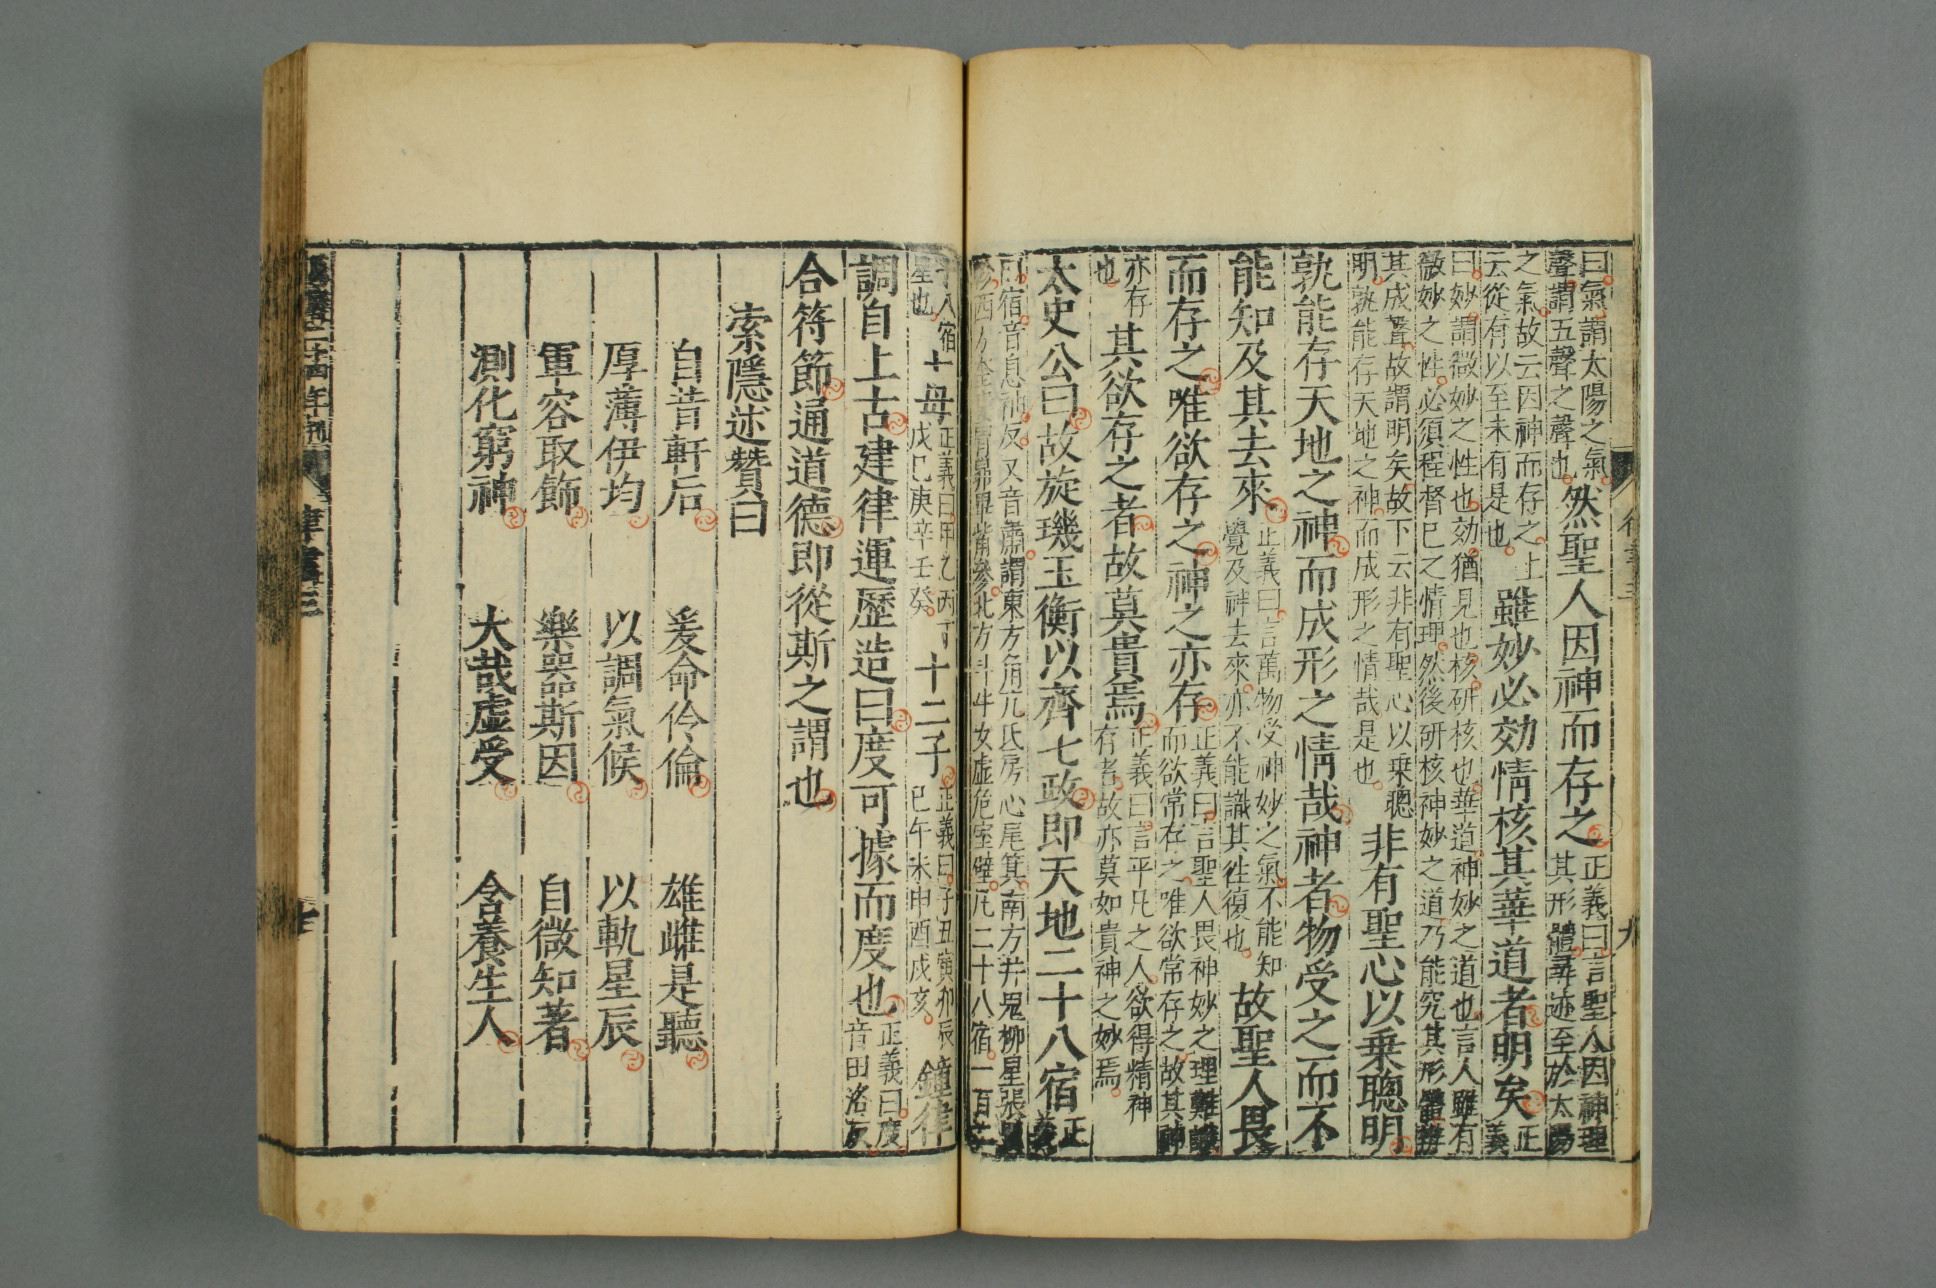 曰氣謂太陽之氣
聲謂五聲之聲也
然聖人因神而存之
正義曰言聖人因神理
其形體尋迹至於太陽
之氣故云因神而存之上
云從有以至未有是也
雖妙必効情核其華道者明矣
正
義
曰妙謂微妙之性也効猶見也核研核也華道神妙之道也言人雖有
微妙之性必須程督已之情理然後研核神妙之道乃能究其形體辨
其成聲故謂明矣故下云非有聖心以乗聰
明孰能存天地之神而成形之情哉是也
非有聖心以乗聰明
孰能存天地之神而成形之情哉神者物受之而不
能知及其去來
正義曰言萬物受神妙之氣不能知
覺及神去來亦不能識其徃復也
故聖人畏
而存之唯欲存之神之亦存
正義曰言聖人畏神妙之理難識
而欲常存之唯欲常存之故其神
亦存
也
其欲存之者故莫貴焉
正義曰言平凡之人欲得精神
有者故亦莫如貴神之妙焉
太史公曰故旋璣玉衡以齊七政即天地二十八宿
正
義
曰宿音息袖反又音肅謂東方角亢氐房心尾箕南方井鬼柳星張翼
軫西方奎婁胃昴畢觜參北方斗牛女虛危室壁凡二十八宿一百
十八宿
星也
十母
正義曰甲乙丙丁
戊己庚辛壬癸
十二子
正義曰子丑寅卯辰
巳午未申酉戌亥
鍾律
調自上古建律運歷造曰度可據而度也
正義曰度
音田洛反
合符節通道德即從斯之謂也
索隱述贊曰
自昔軒后 爰命伶倫 雄雌是聽
厚薄伊均 以調氣候 以軌星辰
軍容取飾 樂器斯因 自微知著
測化窮神 大哉虛受 含養生人
律書三